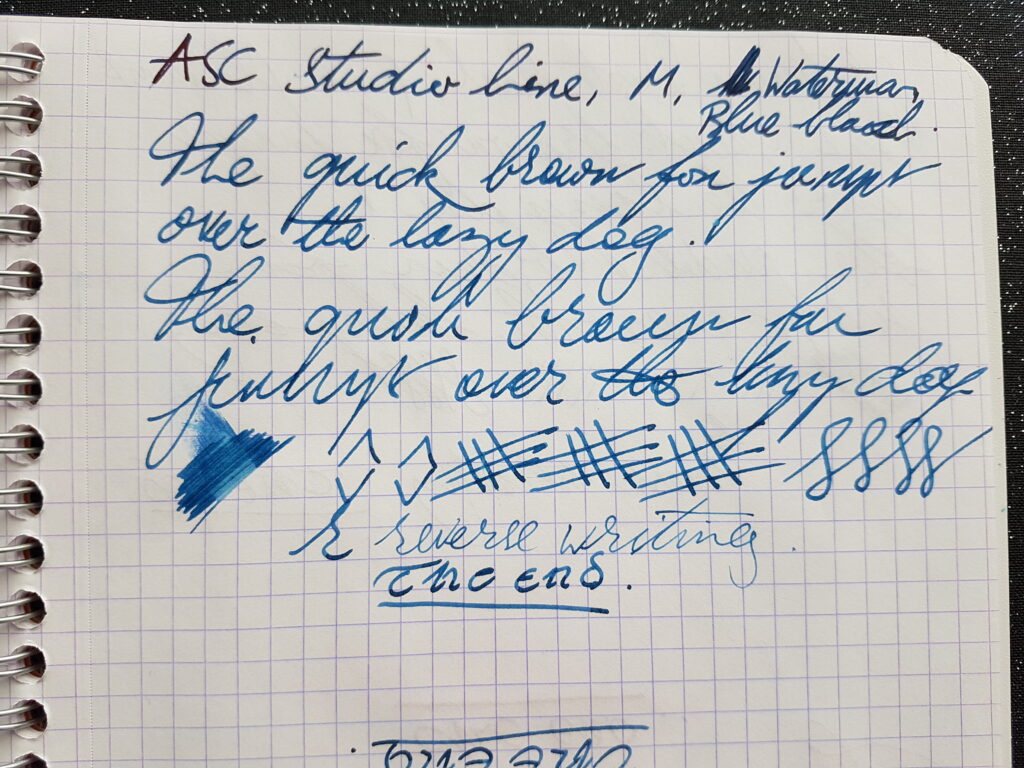 ASC Studio Line, M, Waterman
Blue black.
The quick brown fox jumpt
over the lazy dog.
The quick brown fox
jumpt over the lazy dog
reverse writing.
The end.